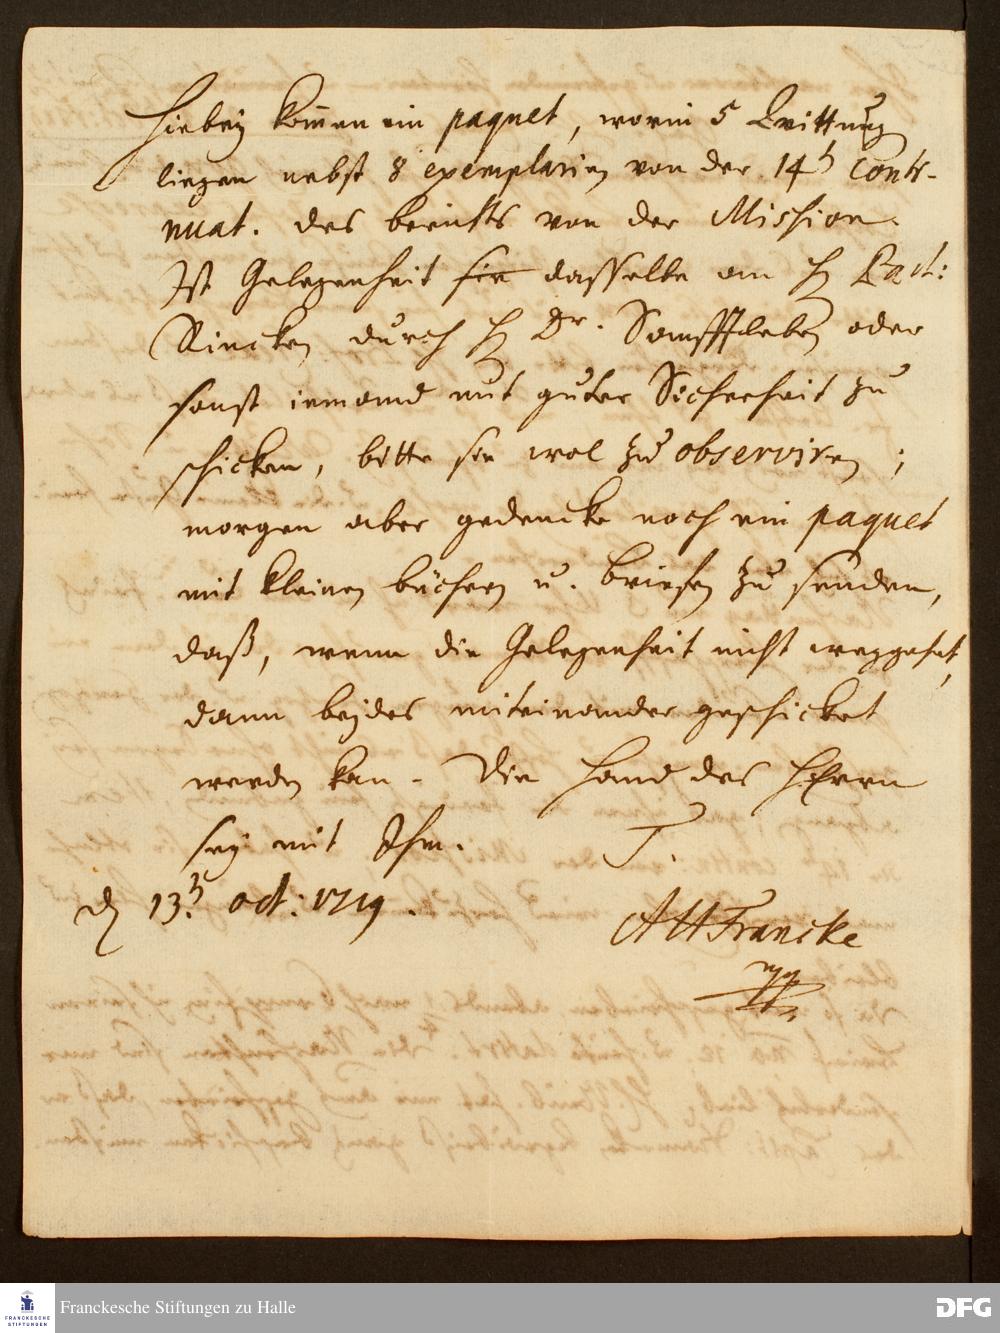 Hierbey kom̅en ein paquet, worin 5 Quittung
liegen nebst 8 exemplarien von der 14t Conti-
nuat. des berichts von der Mission.
Ist Gelegenheit sie dasselbe an H Past:
Rincken durch H Dr. oder
sonst iemand mit guter Sicherheit zu
schicken, bitte sie wol zu observiren;
morgen aber gedencke noch ein paquet
mit kleinen büchern u. briefen zu senden,
daß, wenn die Gelegenheit nicht weggehet,
dann beydes miteinander geschicket
werden kan. Die Hand des HErrn
sey mit Ihm. T.
d 13t. oct: 1719.
AHFrancke
Franckesche Stiftungen zu Halle
FRANCKESCHE
STIFTUNGEN
DFG